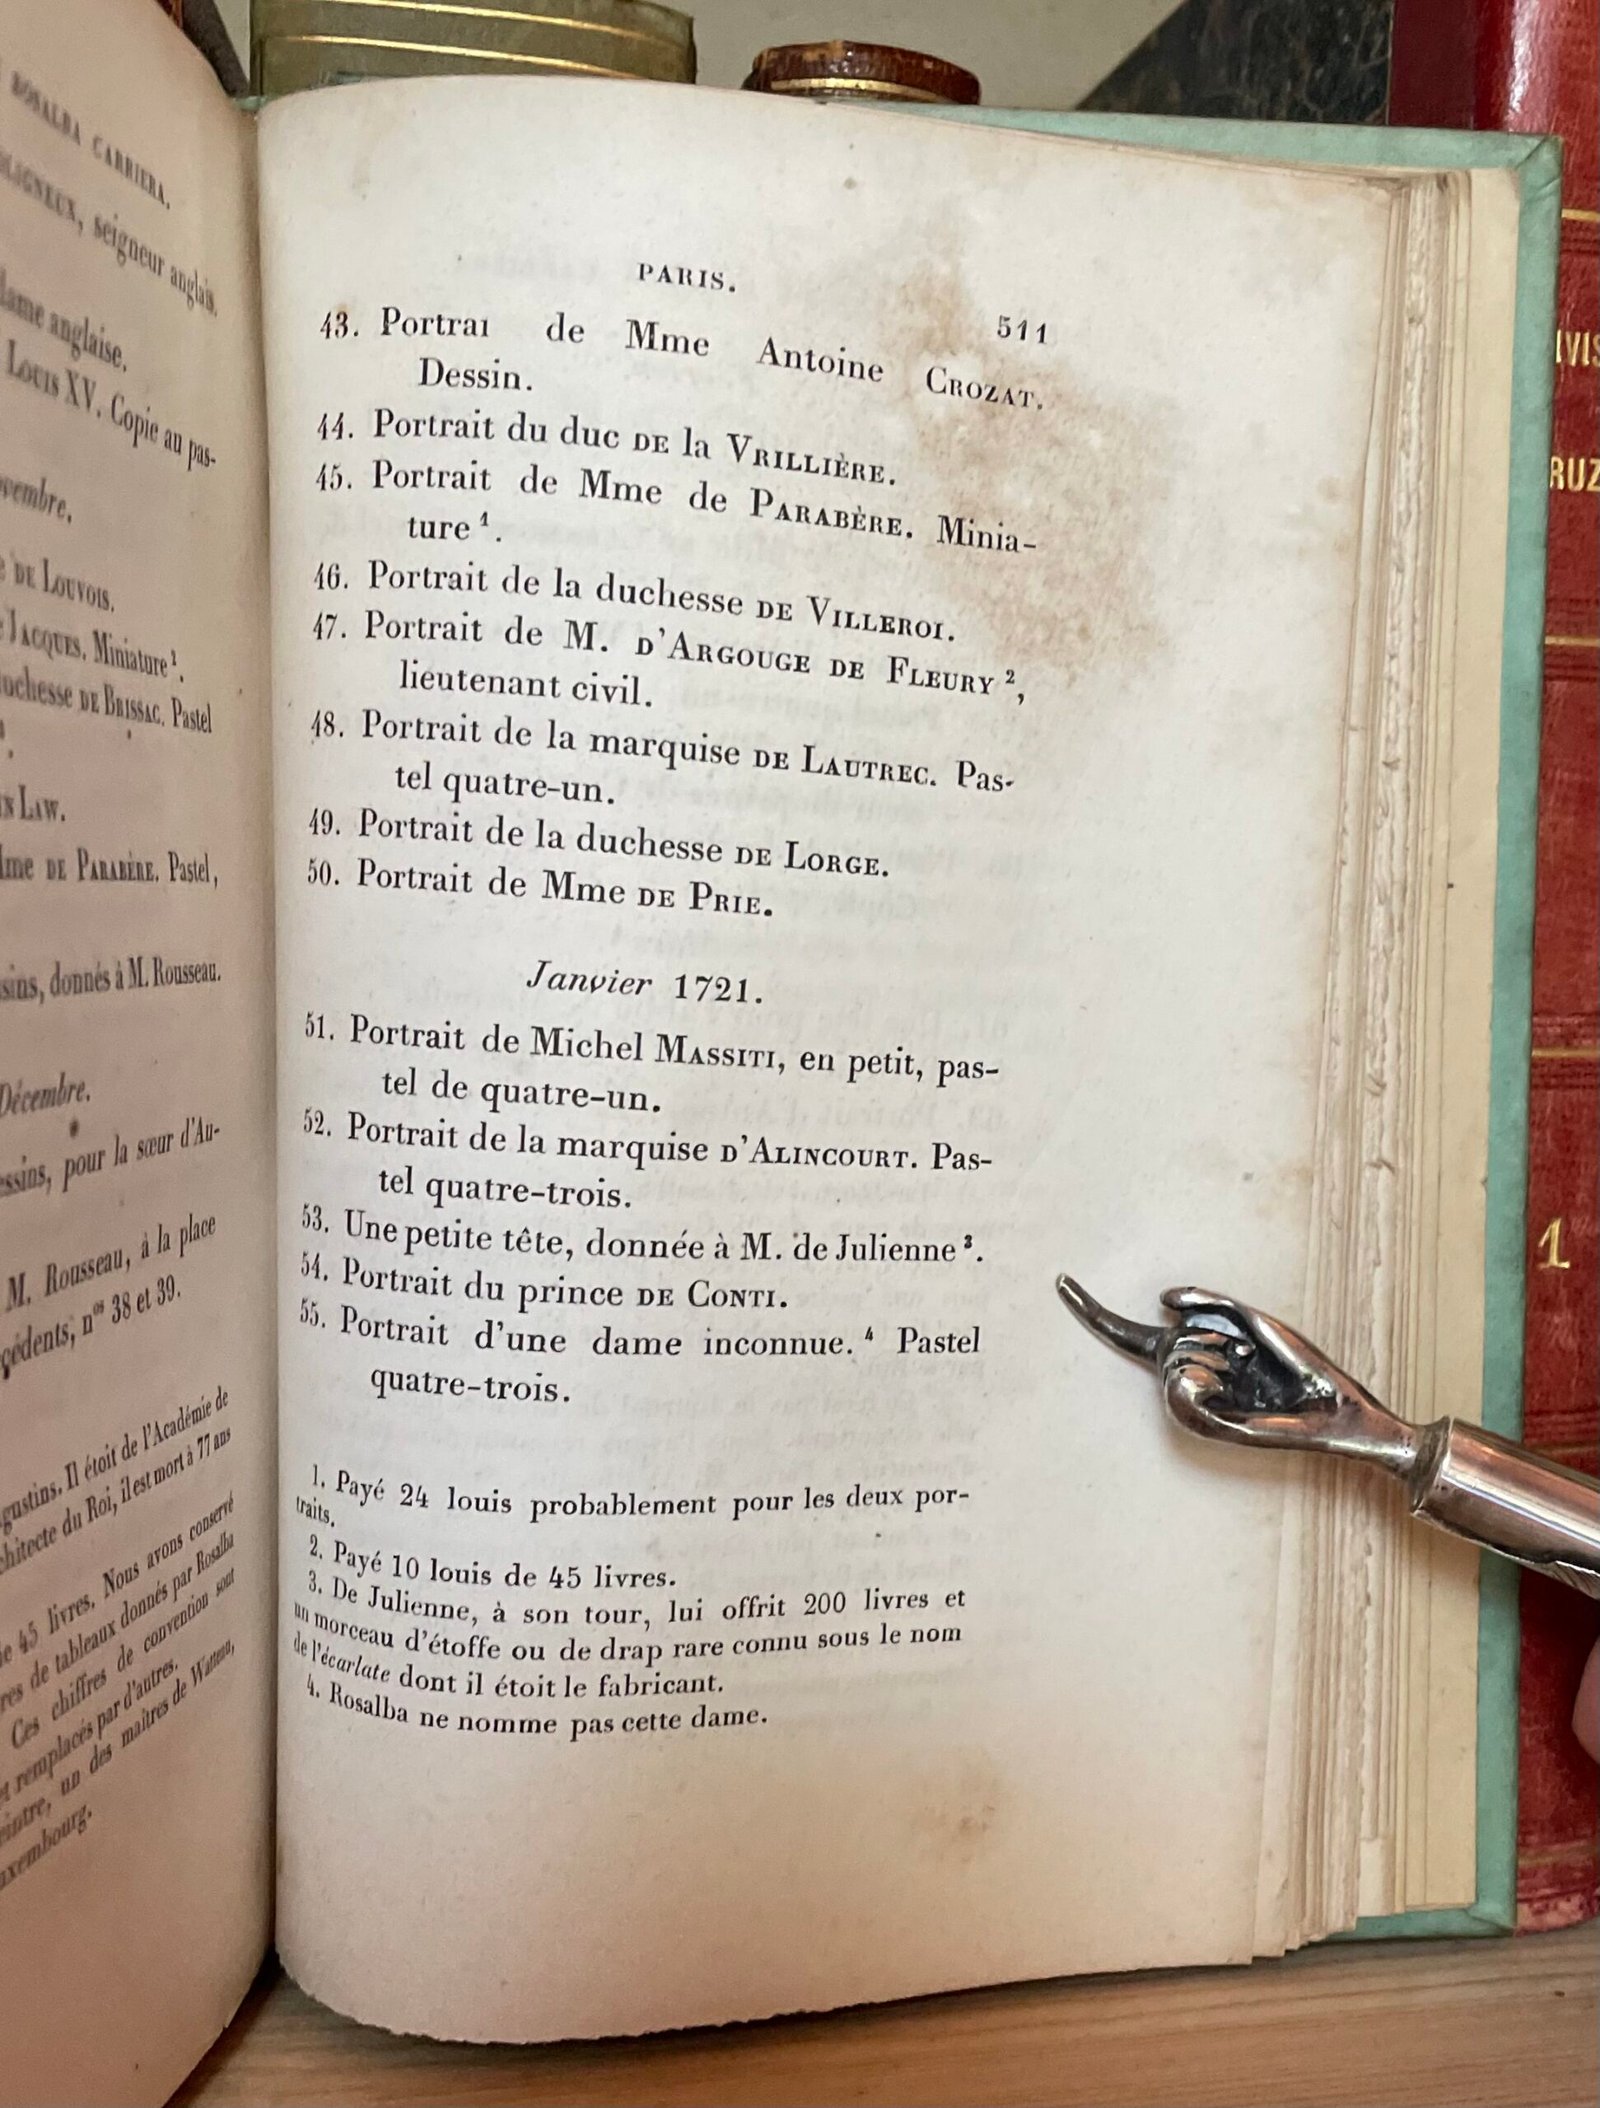 ROSALBA CARRIERA.
seigneur anglais.
dame anglaise.
Louis XV. Copie au pas-
DE LOUVOIS.
JACQUES. Miniature¹.
duchesse DE BRISSAC. Pastel
LAW.
Mme DE PARABÈRE. Pastel,
donnés à M. Rousseau.
Décembre.
pour la sœur d'Au-
M. Rousseau, à la place
nos 38 et 39.
Il étoit de l'Académie de
du Roi, il est mort à 77 ans
45 livres. Nous avons conservé
de tableaux donnés par Rosalba
Ces chiffres de convention sont
et remplacés par d'autres.
un des maîtres de Watteau,
PARIS.
511
43. Portrai de Mme Antoine CROZAT.
Dessin.
44. Portrait du duc DE la VRILLIÈRE.
45. Portrait de Mme de PARABÈRE. Minia-
ture¹.
46. Portrait de la duchesse DE VILLEROI.
47. Portrait de M. D'ARGOUGE DE FLEURY²,
lieutenant civil.
48. Portrait de la marquise DE LAUTREC. Pas-
tel quatre-un.
49. Portrait de la duchesse DE LORGE.
50. Portrait de Mme DE PRIE.
Janvier 1721.
51. Portrait de Michel MASSITI, en petit, pas-
tel de quatre-un.
52. Portrait de la marquise D'ALINCOURT. Pas-
tel quatre-trois.
53. Une petite tête, donnée à M. de Julienne³.
54. Portrait du prince DE CONTI.
55. Portrait d'une dame inconnue.⁴ Pastel
quatre-trois.
1. Payé 24 louis probablement pour les deux por-
traits.
2. Payé 10 louis de 45 livres.
3. De Julienne, à son tour, lui offrit 200 livres et
un morceau d'étoffe ou de drap rare connu sous le nom
de l'écarlate dont il étoit le fabricant.
4. Rosalba ne nomme pas cette dame.
1